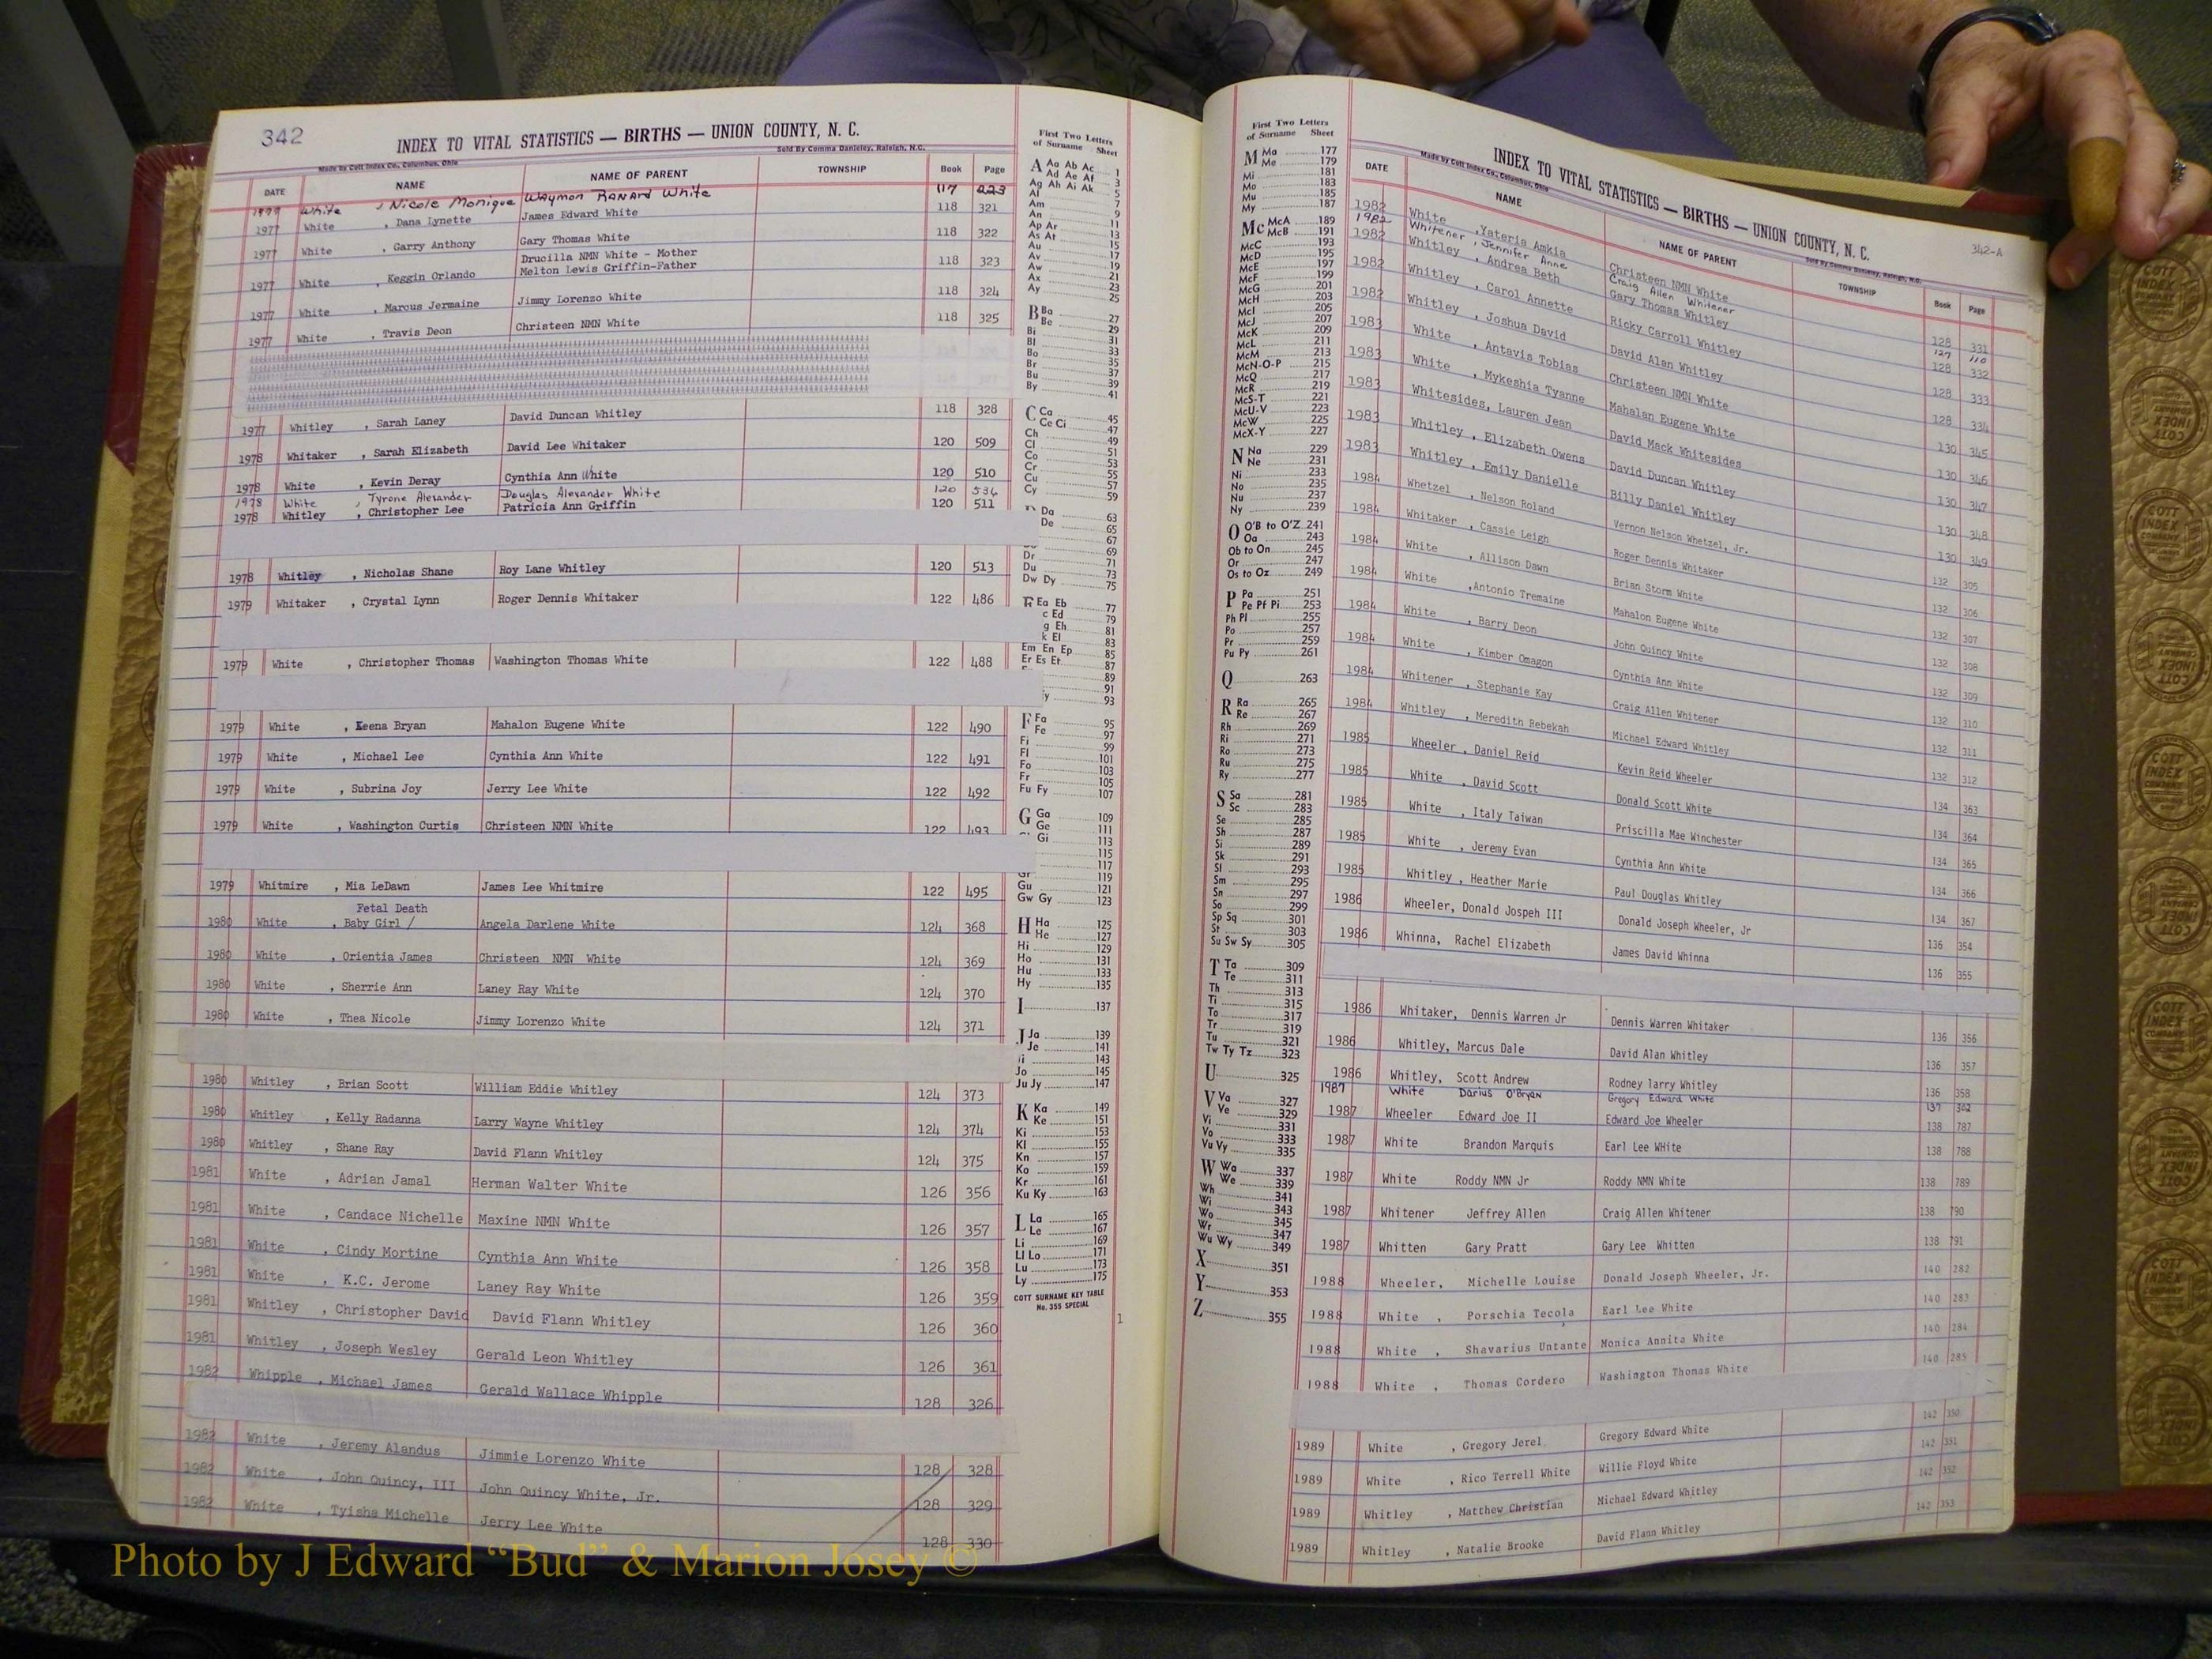 342
INDEX TO VITAL STATISTICS — BIRTHS — UNION COUNTY, N. C.
Made by Cott Index Co., Columbus, Ohio Sold By Comma Danieley, Raleigh, N.C.
DATE NAME NAME OF PARENT TOWNSHIP Book Page
White , Nicole Monique Waymon Ranard White 117 223
1977 White , Dana Lynette James Edward White 118 321
1977 White , Garry Anthony Gary Thomas White 118 322
Drucilla NMN White - Mother
1977 White , Keggin Orlando Melton Lewis Griffin-Father 118 323
1977 White , Marcus Jermaine Jimmy Lorenzo White 118 324
1977 White , Travis Deon Christeen NMN White 118 325
1977 Whitley , Sarah Laney David Duncan Whitley 118 328
1978 Whitaker , Sarah Elizabeth David Lee Whitaker 120 509
1978 White , Kevin Deray Cynthia Ann White 120 510
1978 White , Tyrone Alexander Douglas Alexander White 120 536
1978 Whitley , Christopher Lee Patricia Ann Griffin 120 511
1978 Whitley , Nicholas Shane Roy Lane Whitley 120 513
1979 Whitaker , Crystal Lynn Roger Dennis Whitaker 122 486
1979 White , Christopher Thomas Washington Thomas White 122 488
1979 White , Keena Bryan Mahalon Eugene White 122 490
1979 White , Michael Lee Cynthia Ann White 122 491
1979 White , Subrina Joy Jerry Lee White 122 492
1979 White , Washington Curtis Christeen NMN White 122 493
1979 Whitmire , Mia LeDawn James Lee Whitmire 122 495
Fetal Death
1980 White , Baby Girl / Angela Darlene White 124 368
1980 White , Orientia James Christeen NMN White 124 369
1980 White , Sherrie Ann Laney Ray White 124 370
1980 White , Thea Nicole Jimmy Lorenzo White 124 371
1980 Whitley , Brian Scott William Eddie Whitley 124 373
1980 Whitley , Kelly Radanna Larry Wayne Whitley 124 374
1980 Whitley , Shane Ray David Flann Whitley 124 375
1981 White , Adrian Jamal Herman Walter White 126 356
1981 White , Candace Nichelle Maxine NMN White 126 357
1981 White , Cindy Mortine Cynthia Ann White 126 358
1981 White , K.C. Jerome Laney Ray White 126 359
1981 Whitley , Christopher David David Flann Whitley 126 360
1981 Whitley , Joseph Wesley Gerald Leon Whitley 126 361
1982 Whipple , Michael James Gerald Wallace Whipple 128 326
1982 White , Jeremy Alandus Jimmie Lorenzo White 128 328
1982 White , John Quincy, III John Quincy White, Jr. 128 329
1982 White , Tyisha Michelle Jerry Lee White 128 330
First Two Letters
of Surname Sheet
A Aa Ab Ac 1
Ad Ae Af 3
Ag Ah Ai Ak 5
Al 7
Am 9
An 11
Ap Ar 13
As At 15
Au 17
Av 19
Aw 21
Ax 23
Ay 25
B Ba 27
Be 29
Bi 31
Bl 33
Bo 35
Br 37
Bu 39
By 41
C Ca 45
Ce Ci 47
Ch 49
Cl 51
Co 53
Cr 55
Cu 57
Cy 59
Da 63
De 65
67
Dr 69
Du 71
Dw Dy 73
75
E Ea Eb 77
c Ed 79
g Eh 81
k El 83
Em En Ep 85
Er Es Et 87
89
91
y 93
F Fa 95
Fe 97
Fi 99
Fl 101
Fo 103
Fr 105
Fu Fy 107
G Ga 109
Ge 111
Gi 113
115
117
Gr 119
Gu 121
Gw Gy 123
H Ha 125
He 127
Hi 129
Ho 131
Hu 133
Hy 135
I 137
J Ja 139
Je 141
Ji 143
Jo 145
Ju Jy 147
K Ka 149
Ke 151
Ki 153
Kl 155
Kn 157
Ko 159
Kr 161
Ku Ky 163
L La 165
Le 167
Li 169
Ll Lo 171
Lu 173
Ly 175
COTT SURNAME KEY TABLE
No. 355 SPECIAL
1
First Two Letters
of Surname Sheet
M Ma 177
Me 179
Mi 181
Mo 183
Mu 185
My 187
Mc McA 189
McB 191
McC 193
McD 195
McE 197
McF 199
McG 201
McH 203
McI 205
McJ 207
McK 209
McL 211
McM 213
McN-O-P 215
McQ 217
McR 219
McS-T 221
McU-V 223
McW 225
McX-Y 227
N Na 229
Ne 231
Ni 233
No 235
Nu 237
Ny 239
O O'B to O'Z 241
Oa 243
Ob to On 245
Or 247
Os to Oz 249
P Pa 251
Pe Pf Pi 253
Ph Pl 255
Po 257
Pr 259
Pu Py 261
Q 263
R Ra 265
Re 267
Rh 269
Ri 271
Ro 273
Ru 275
Ry 277
S Sa 281
Sc 283
Se 285
Sh 287
Si 289
Sk 291
Sl 293
Sm 295
Sn 297
So 299
Sp Sq 301
St 303
Su Sw Sy 305
T Ta 309
Te 311
Th 313
Ti 315
To 317
Tr 319
Tu 321
Tw Ty Tz 323
U 325
V Va 327
Ve 329
Vi 331
Vo 333
Vu Vy 335
W Wa 337
We 339
Wh 341
Wi 343
Wo 345
Wr 347
Wu Wy 349
X 351
Y 353
Z 355
INDEX TO VITAL STATISTICS — BIRTHS — UNION COUNTY, N. C.
342-A
Made by Cott Index Co., Columbus, Ohio Sold By Comma Danieley, Raleigh, N.C.
DATE NAME NAME OF PARENT TOWNSHIP Book Page
1982 White , Xateria Amkia Christeen NMN White 128 331
1982 Whitener , Jennifer Anne Craig Allen Whitener 127 110
1982 Whitley , Andrea Beth Gary Thomas Whitley 128 332
1982 Whitley , Carol Annette Ricky Carroll Whitley 128 333
1982 Whitley , Joshua David David Alan Whitley 128 334
1983 White , Antavis Tobias Christeen NMN White 130 345
1983 White , Mykeshia Tyanne Mahalan Eugene White 130 346
1983 Whitesides, Lauren Jean David Mack Whitesides 130 347
1983 Whitley , Elizabeth Owens David Duncan Whitley 130 348
1983 Whitley , Emily Danielle Billy Daniel Whitley 130 349
1984 Whetzel , Nelson Roland Vernon Nelson Whetzel, Jr. 132 305
1984 Whitaker , Cassie Leigh Roger Dennis Whitaker 132 306
1984 White , Allison Dawn Brian Storm White 132 307
1984 White ,Antonio Tremaine Mahalon Eugene White 132 308
1984 White , Barry Deon John Quincy White 132 309
1984 White , Kimber Omagon Cynthia Ann White 132 310
1984 Whitener , Stephanie Kay Craig Allen Whitener 132 311
1984 Whitley , Meredith Rebekah Michael Edward Whitley 132 312
1985 Wheeler , Daniel Reid Kevin Reid Wheeler 134 363
1985 White , David Scott Donald Scott White 134 364
1985 White , Italy Taiwan Priscilla Mae Winchester 134 365
1985 White , Jeremy Evan Cynthia Ann White 134 366
1985 Whitley , Heather Marie Paul Douglas Whitley 134 367
1986 Wheeler, Donald Jospeh III Donald Joseph Wheeler, Jr 136 354
1986 Whinna, Rachel Elizabeth James David Whinna 136 355
1986 Whitaker, Dennis Warren Jr Dennis Warren Whitaker 136 356
1986 Whitley, Marcus Dale David Alan Whitley 136 357
1986 Whitley, Scott Andrew Rodney larry Whitley 136 358
1987 White Darius O'Bryan Gregory Edward White 137 362
1987 Wheeler Edward Joe II Edward Joe Wheeler 138 787
1987 White Brandon Marquis Earl Lee WHite 138 788
1987 White Roddy NMN Jr Roddy NMN White 138 789
1987 Whitener Jeffrey Allen Craig Allen Whitener 138 790
1987 Whitten Gary Pratt Gary Lee Whitten 138 791
1988 Wheeler, Michelle Louise Donald Joseph Wheeler, Jr. 140 282
1988 White , Porschia Tecola Earl Lee White 140 283
1988 White , Shavarius Untante Monica Annita White 140 284
1988 White , Thomas Cordero Washington Thomas White 140 285
1989 White , Gregory Jerel Gregory Edward White 142 350
1989 White , Rico Terrell White Willie Floyd White 142 351
1989 Whitley , Matthew Christian Michael Edward Whitley 142 352
1989 Whitley , Natalie Brooke David Flann Whitley 142 353
COTT
INDEX
COMPANY
Photo by J Edward “Bud” & Marion Josey ©